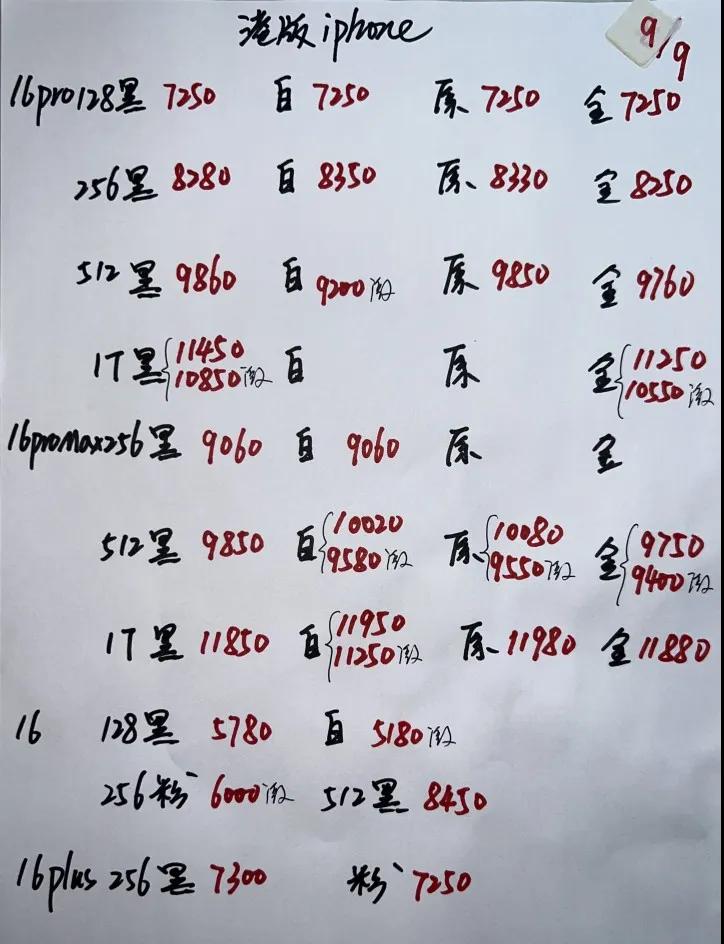 港版iphone 9/9
16pro128黑 7250 白 7250 原 7250 金 7250
256黑 8280 白 8350 原 8330 金 8250
512黑 9860 白 9200激 原 9850 金 9760
1T黑 11450 白 原 金 11250
10850激 10550激
16promax256黑 9060 白 9060 原 金
512黑 9850 白 10020 原 10080 金 9750
9580激 9550激 9400激
1T黑 11850 白 11950 原 11980 金 11880
11250激
16 128黑 5780 白 5180激
256粉 6000激 512黑 8450
16plus 256黑 7300 粉 7250